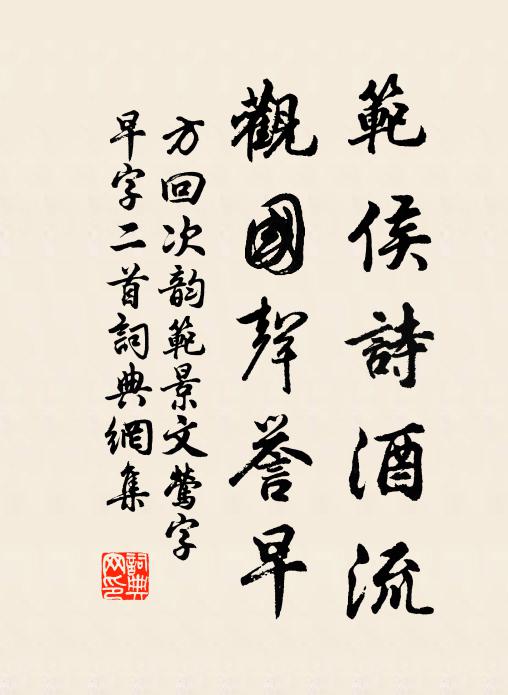 範侯詩酒流
觀國聲誉早
方回次韵範景文鶯字
早字二首詞典網集
詞典网印